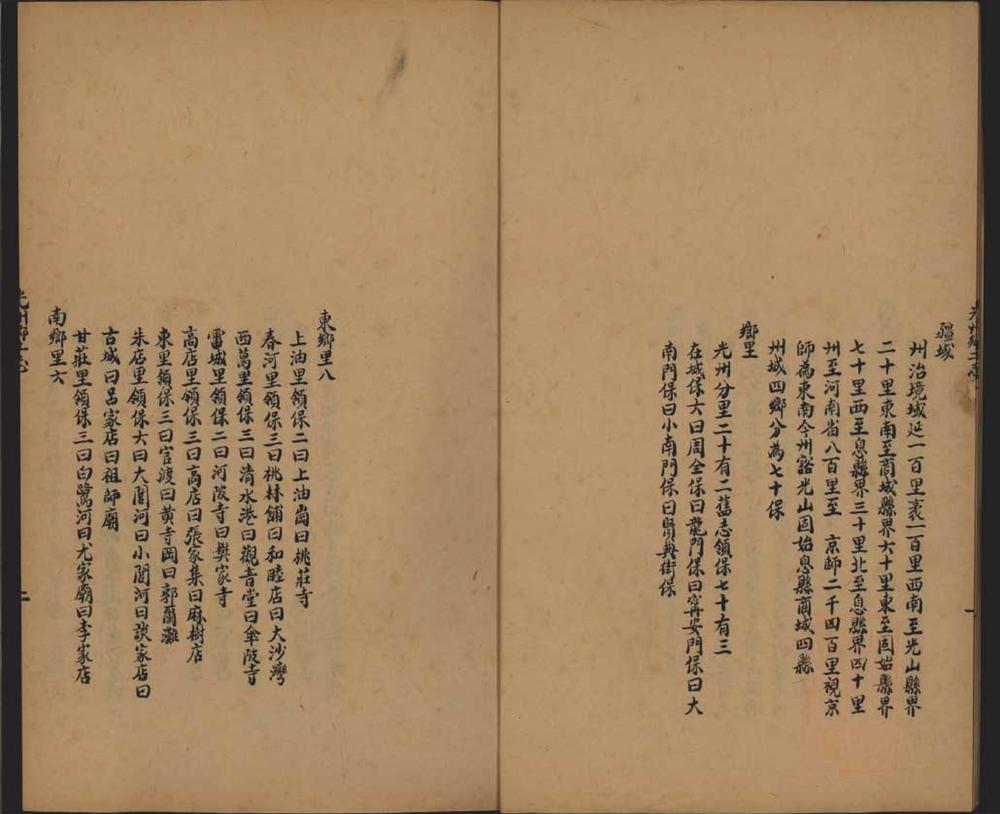 疆域
州治境域延一百里袤一百里西南至光山縣界
二十里東南至商城縣界六十里東至固始縣界
七十里西至息縣界三十里北至息縣界四十里
州至河南省八百里至　京師二千四百里視京
師為東南今州豁光山固始息縣商城四縣
州城四鄉分為七十保
鄉里
光州分里二十有二舊志領保七十有三
在城保六曰周全保曰龍門保曰甯安門保曰大
南門保曰小南門保曰賢典街保
東鄉里八
上油里領保二曰上油崗曰桃莊寺
春河里領保三曰桃林鋪曰和睦店曰大沙灣
西萬里領保三曰清水港曰觀音堂曰傘陂寺
雷城里領保二曰河陂寺曰樊家寺
高店里領保三曰高店曰張家集曰麻樹店
東里領保三曰官渡曰黃寺岡曰郭爾灘
朱店里領保六曰大閭河曰小閭河曰談家店曰
古城曰呂家店曰祖師廟
甘莊里領保三曰白鷺河曰尤家廟曰李家店
南鄉里六
光州鄉土志
二